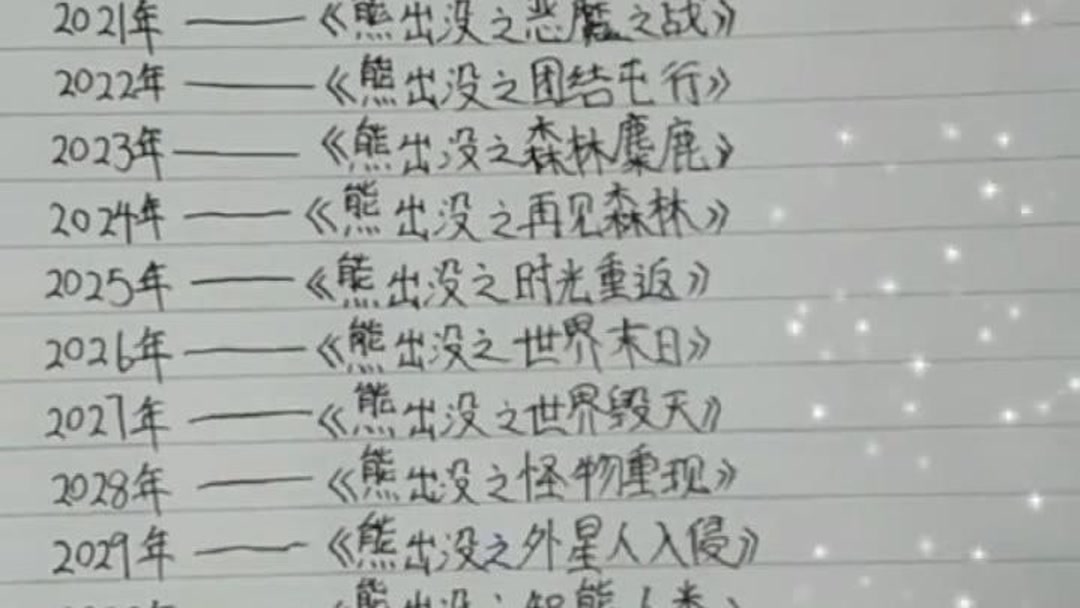 2021年——《熊出没之恶魔之战》
2022年——《熊出没之团结屯行》
2023年——《熊出没之森林麋鹿》
2024年——《熊出没之再见森林》
2025年——《熊出没之时光重返》
2026年——《熊出没之世界末日》
2027年——《熊出没之世界毁天》
2028年——《熊出没之怪物重现》
2029年——《熊出没之外星人入侵》
《熊出没之智能人类》